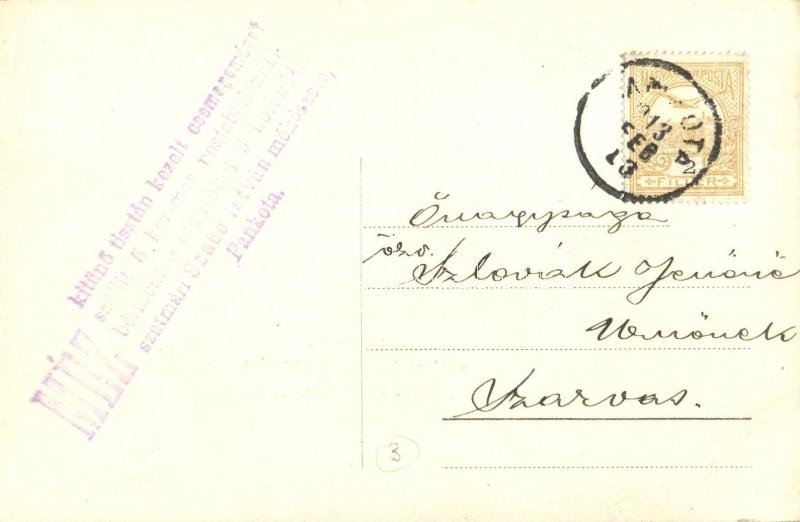 MÉZ
kitünő tisztán kezelt csemegemézet
szállit 5 kgrmos postabödönben
bérmentve utánvéttel 9 koronáért
szatmári Szabó István méhészete,
Pankota.
2
FILLÉR
PANKOTA
913
FEB
13
Őnagysága
özv. Szlovák Jenőné
Urnőnek
Szarvas.
3